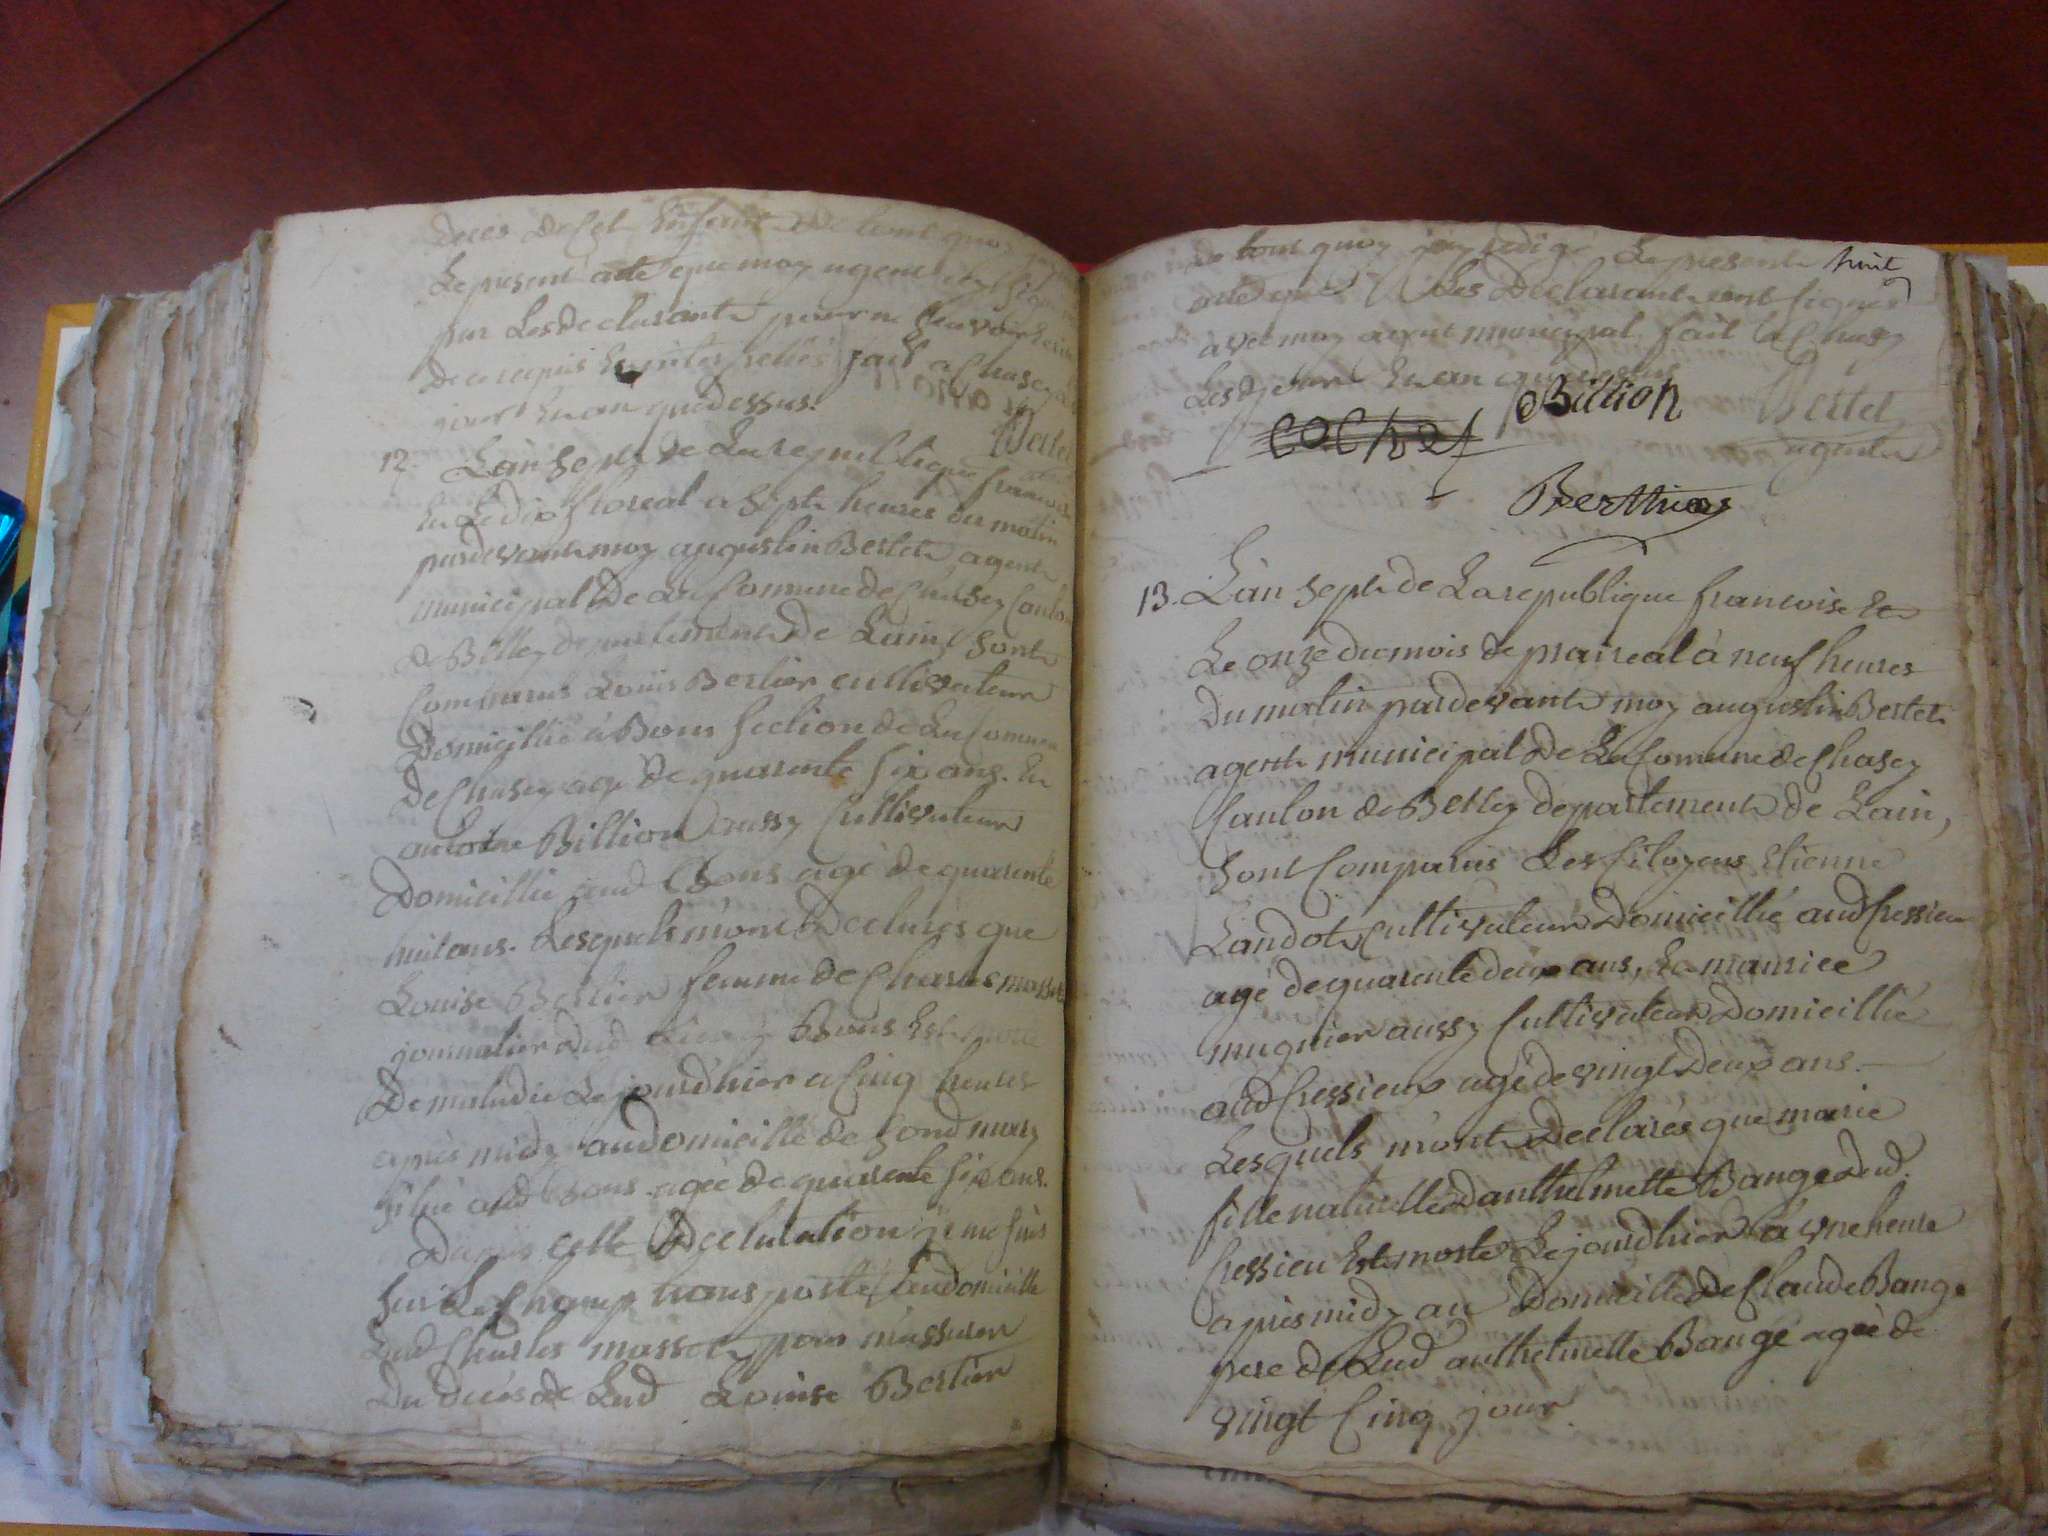 deces de Cet Enfant de tout quoy
Le present acte que moy agent ay signé
par Les declarants pour ne scavoir
de ce requis Enquis interpellés fait a Chasey
jour Et an que dessus.
Bertet
12. L'an Sept de La republique francoise
Et Le dix floreal a Sept heures du matin
pardevant moy augustin Bertet agent
municipal de La Comune de Chasey Canton
de Belley departement de Lain, Sont
Comparus Louis Berlier cultivateur
Domicillié à Bons section de La Comune
de Chasey agé de quarente six ans. Et
antoine Billion aussy Cultivateur
Domicillié aud Bons agé de quarente
huit ans. Lesquels m'ont Declarés que
Louise Berlier femme de Charles masset
journalier dud Bons Est morte
De maladie Le jourdhier a Cinq heures
après midy au domicille de Sond mary
situé aud Bons agée de quarente six ans.
Dapres cette Declaration je me suis
sur Le Champ transporté au domicille
dud Charles masset pour m'assurer
Du deces de Lad Louise Berlier
huit
De tout quoy jay redigé Le present
acte que Les Declarants ont signés
avec moy agent municipal fait a Chasey
Les jour Et an que dessus
Billion Bertet
cochet agent
Berthier
13. L'an Sept de La republique francoise Et
Le onze du mois de praireal à neuf heures
Du matin pardevant moy augustin Bertet
agent municipal de La Comune de Chasey
Canton de Belley departement de Lain,
Sont Comparus Les Citoyens Etienne
Landot Cultivateur Domicillié aud Cressieu
agé de quarente deux ans, Et maurice
mugnier aussy Cultivateur Domicillié
aud Cressieux agé de vingt Deux ans.
Lesquels m'ont Declarés que marie
fille naturelle Danthelmette Bange dud.
Cressieu Est morte Le jourdhier à vne heure
après midy au Domicille de Claude Bange
pere de Lad anthelmette Bange agée de
vingt Cinq jour